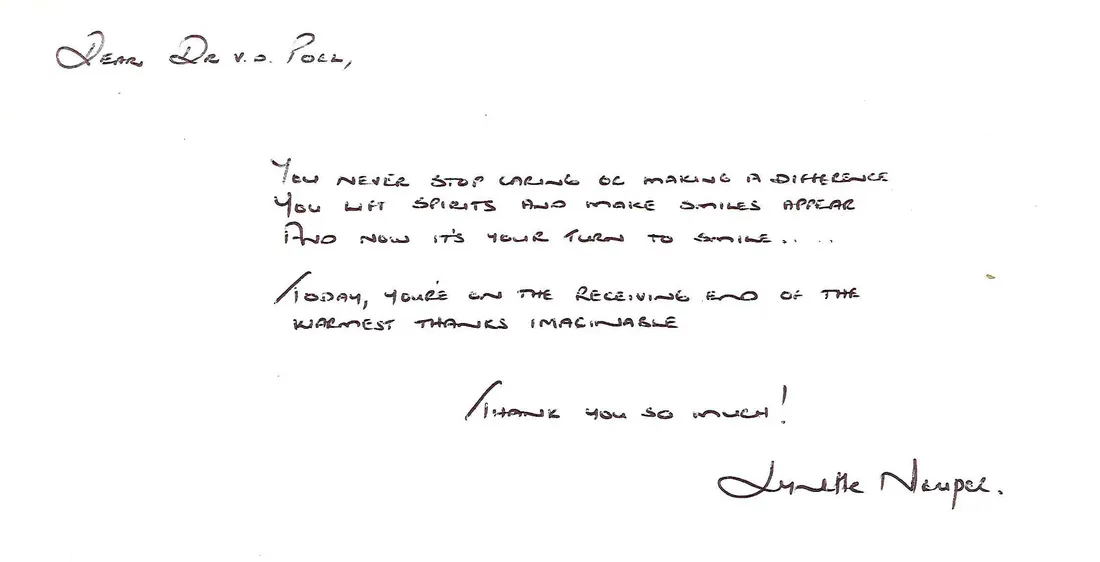 Dear Dr v.d. Poll,
You never stop caring or making a difference
You lift spirits and make smiles appear
And now it's your turn to smile.. ..
Today, you're on the receiving end of the
warmest thanks imaginable
Thank you so much!
Lynette